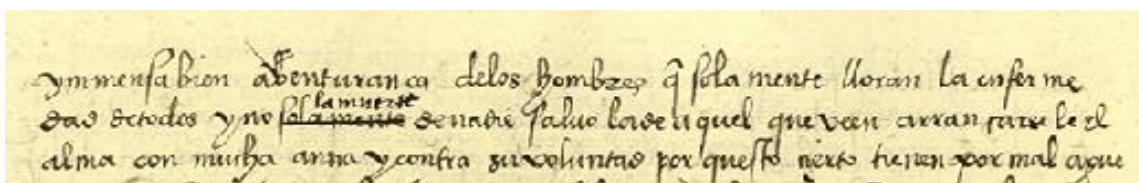 ymmensa bien abenturança delos hombres q̃ sola mente lloran la enferme
dad de todos y no sola mente la muerte de nadie salvo la de aquel que veen arrancarsele el
alma con mucha anna y contra su voluntad por questo cierto tienen por mal aque